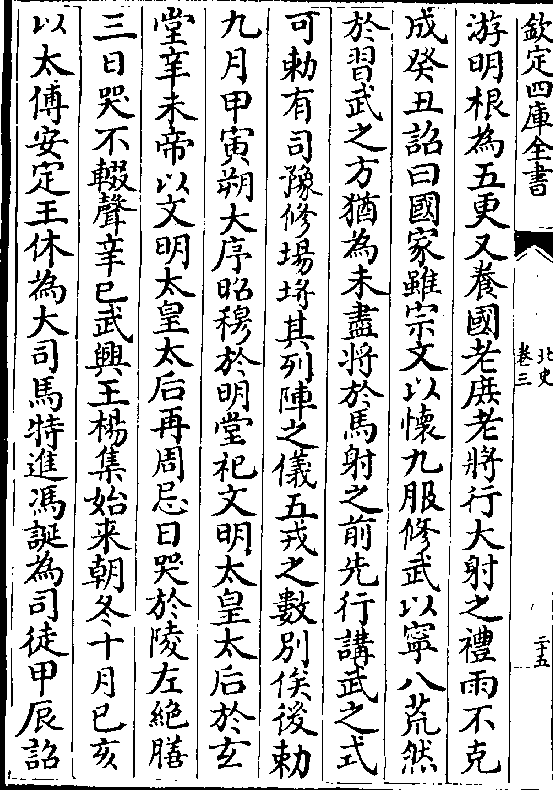 欽定四庫全書
北史
卷三
二十五
游明根為五更又養國老庶老將行大射之禮雨不克
成癸丑詔曰國家雖宗文以懷九服修武以寧八荒然
於習武之方猶為未盡將於馬射之前先行講武之式
可勅有司豫修場埒其列陣之儀五戎之數別俟後勅
九月甲寅朔大序昭穆於明堂祀文明太皇太后於玄
堂辛未帝以文明太皇太后再周忌日哭於陵左絶膳
三日哭不輟聲辛巳武興王楊集始来朝冬十月已亥
以太傅安定王休為大司馬特進馮誕為司徒甲辰詔